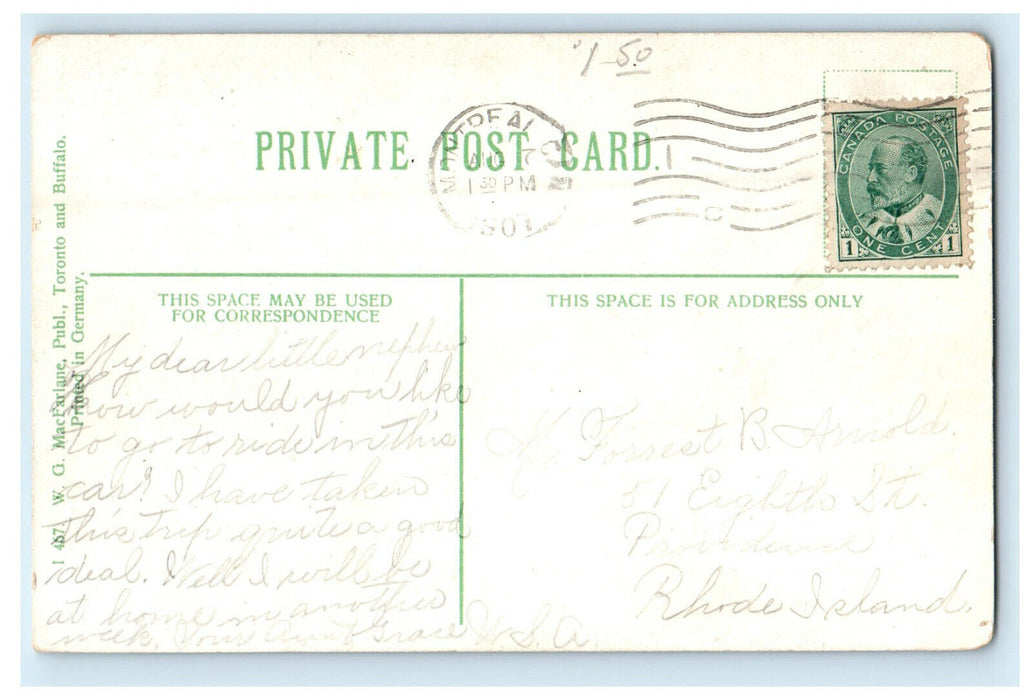 $1.50
PRIVATE POST CARD.
MONTREAL CAN
AUG
1 50 PM
CANADA POSTAGE
1 ONE CENT 1
I 467. W. G. MacFarlane, Publ., Toronto and Buffalo.
Printed in Germany.
THIS SPACE MAY BE USED
FOR CORRESPONDENCE
My dear little nephew
how would you like
to go to ride in this
car? I have taken
this trip quite a good
deal. Well I will be
at home in another
week. Your Aunt Grace
THIS SPACE IS FOR ADDRESS ONLY
Mr. Forrest B. Arnold.
51 Eighth St.
Providence
Rhode Island.
U.S.A.